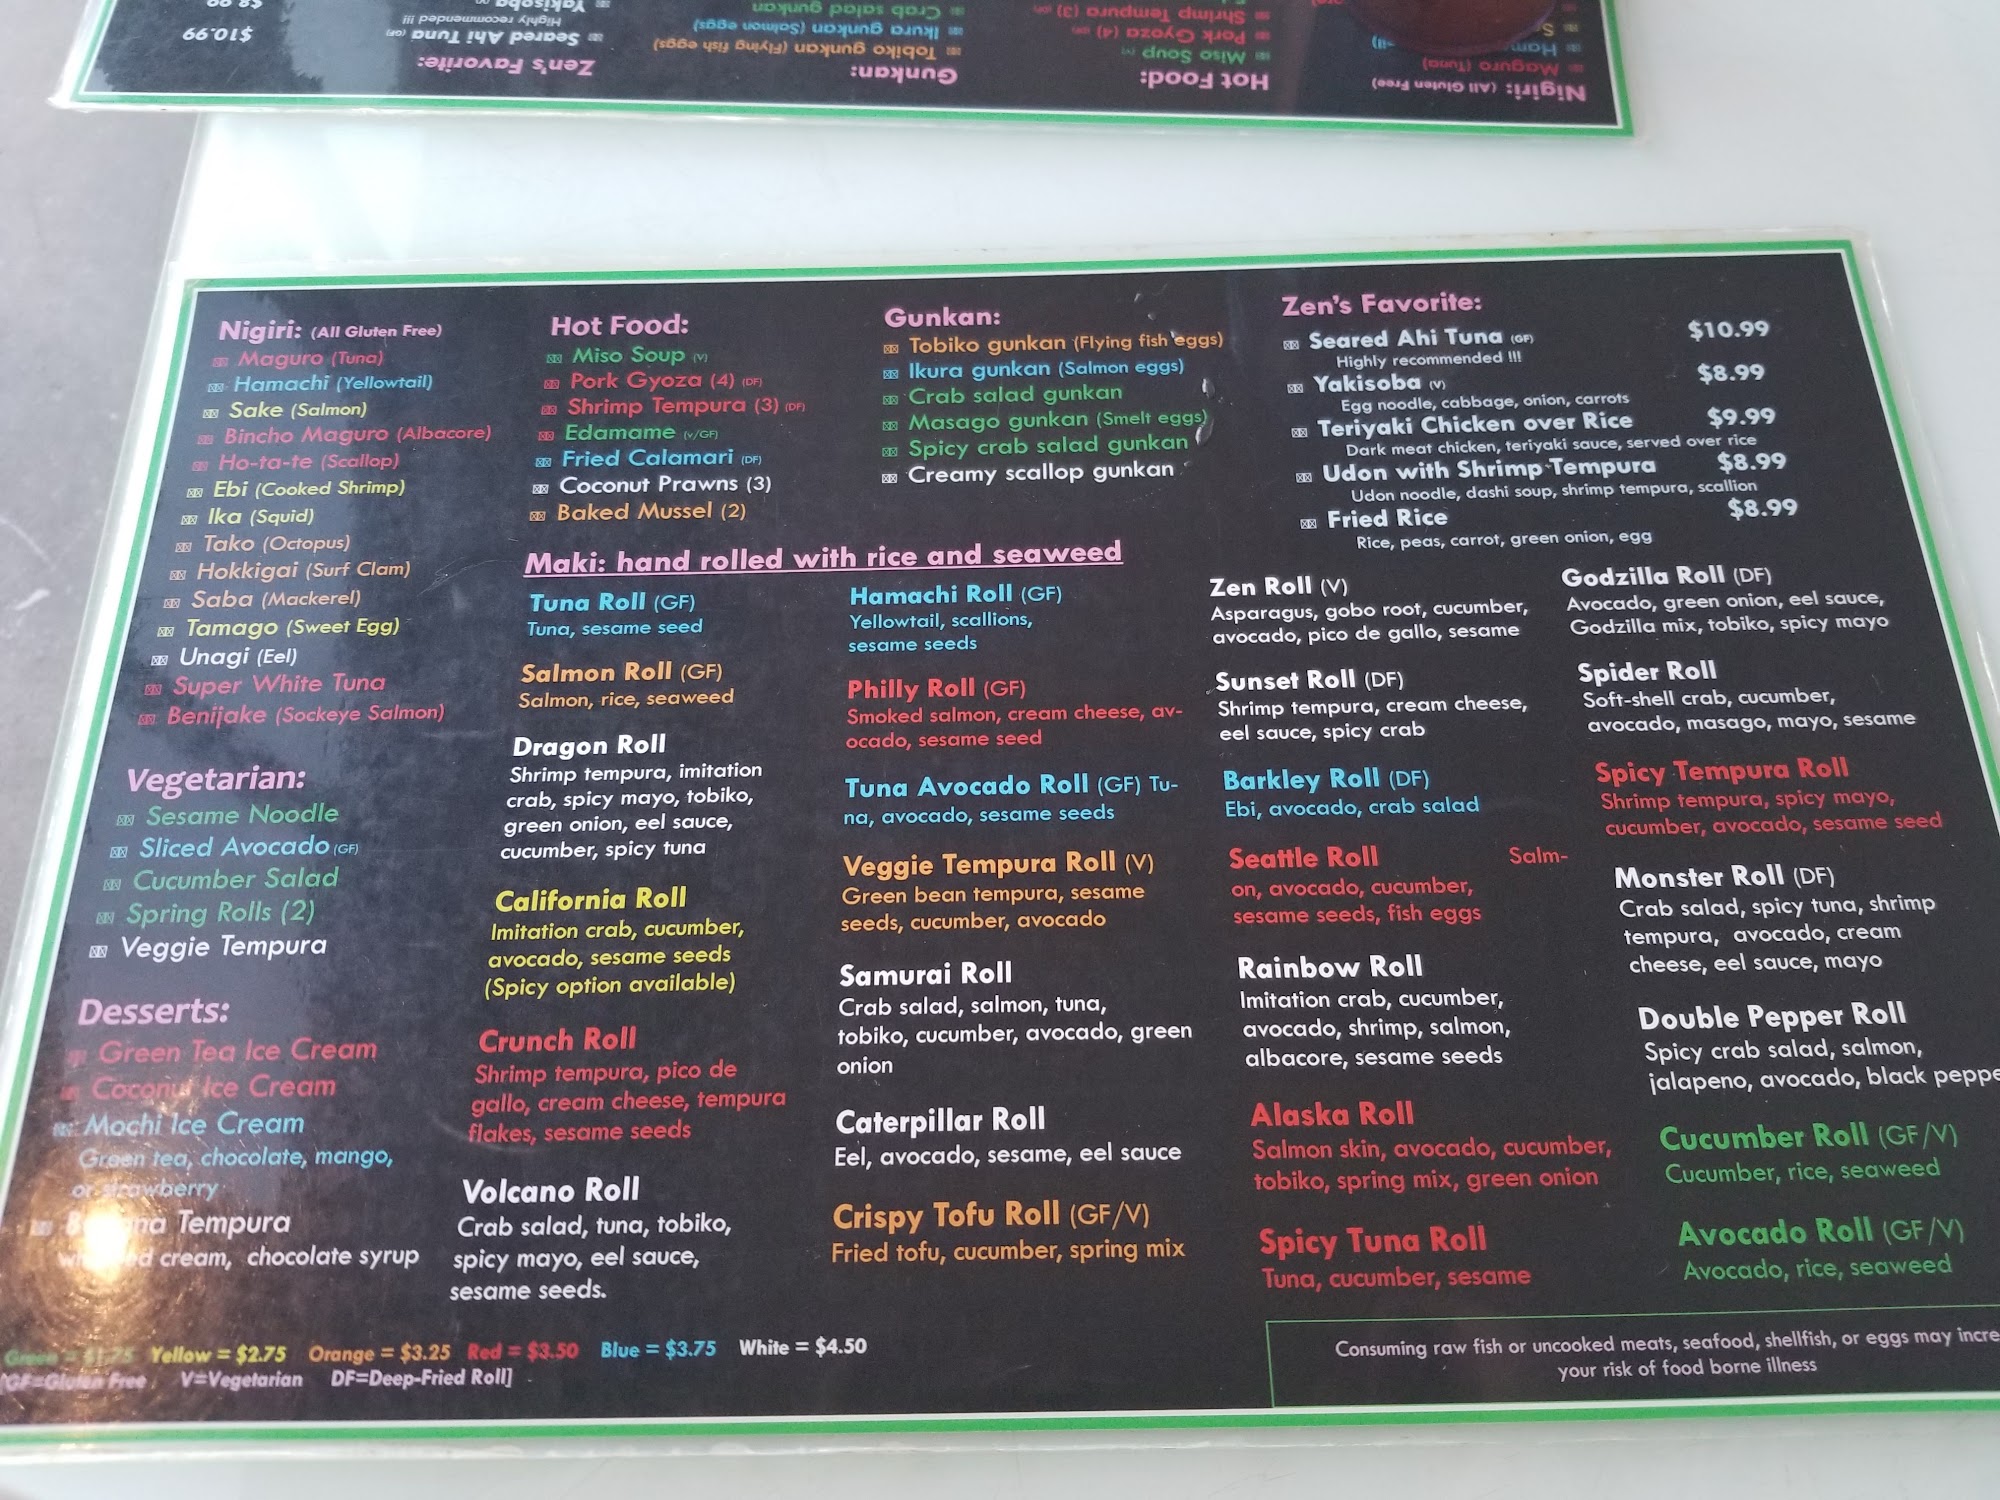 $10.99
Seared Ahi Tuna (GF)
Highly recommended !!!
Yakisoba
Zen's Favorite:
Tobiko gunkan (Flying fish eggs)
Ikura gunkan (Salmon eggs)
Crab salad gunkan
Gunkan:
Miso Soup (V)
Pork Gyoza (4) (DF)
Shrimp Tempura (3) (DF)
Hot Food:
Maguro (Tuna)
Nigiri: (All Gluten Free)
Nigiri: (All Gluten Free)
Maguro (Tuna)
Hamachi (Yellowtail)
Sake (Salmon)
Bincho Maguro (Albacore)
Ho-ta-te (Scallop)
Ebi (Cooked Shrimp)
Ika (Squid)
Tako (Octopus)
Hokkigai (Surf Clam)
Saba (Mackerel)
Tamago (Sweet Egg)
Unagi (Eel)
Super White Tuna
Benijake (Sockeye Salmon)
Vegetarian:
Sesame Noodle
Sliced Avocado (GF)
Cucumber Salad
Spring Rolls (2)
Veggie Tempura
Desserts:
Green Tea Ice Cream
Coconut Ice Cream
Mochi Ice Cream
Green tea, chocolate, mango,
or strawberry
Tempura
cream, chocolate syrup
Hot Food:
Miso Soup (V)
Pork Gyoza (4) (DF)
Shrimp Tempura (3) (DF)
Edamame (V/GF)
Fried Calamari (DF)
Coconut Prawns (3)
Baked Mussel (2)
Gunkan:
Tobiko gunkan (Flying fish eggs)
Ikura gunkan (Salmon eggs)
Crab salad gunkan
Masago gunkan (Smelt eggs)
Spicy crab salad gunkan
Creamy scallop gunkan
Zen's Favorite:
Seared Ahi Tuna (GF) $10.99
Highly recommended !!!
Yakisoba (V) $8.99
Egg noodle, cabbage, onion, carrots
Teriyaki Chicken over Rice $9.99
Dark meat chicken, teriyaki sauce, served over rice
Udon with Shrimp Tempura $8.99
Udon noodle, dashi soup, shrimp tempura, scallion
Fried Rice $8.99
Rice, peas, carrot, green onion, egg
Maki: hand rolled with rice and seaweed
Tuna Roll (GF)
Tuna, sesame seed
Salmon Roll (GF)
Salmon, rice, seaweed
Dragon Roll
Shrimp tempura, imitation
crab, spicy mayo, tobiko,
green onion, eel sauce,
cucumber, spicy tuna
California Roll
Imitation crab, cucumber,
avocado, sesame seeds
(Spicy option available)
Crunch Roll
Shrimp tempura, pico de
gallo, cream cheese, tempura
flakes, sesame seeds
Volcano Roll
Crab salad, tuna, tobiko,
spicy mayo, eel sauce,
sesame seeds.
Hamachi Roll (GF)
Yellowtail, scallions,
sesame seeds
Philly Roll (GF)
Smoked salmon, cream cheese, av-
ocado, sesame seed
Tuna Avocado Roll (GF) Tu-
na, avocado, sesame seeds
Veggie Tempura Roll (V)
Green bean tempura, sesame
seeds, cucumber, avocado
Samurai Roll
Crab salad, salmon, tuna,
tobiko, cucumber, avocado, green
onion
Caterpillar Roll
Eel, avocado, sesame, eel sauce
Crispy Tofu Roll (GF/V)
Fried tofu, cucumber, spring mix
Zen Roll (V)
Asparagus, gobo root, cucumber,
avocado, pico de gallo, sesame
Sunset Roll (DF)
Shrimp tempura, cream cheese,
eel sauce, spicy crab
Barkley Roll (DF)
Ebi, avocado, crab salad
Seattle Roll Salm-
on, avocado, cucumber,
sesame seeds, fish eggs
Rainbow Roll
Imitation crab, cucumber,
avocado, shrimp, salmon,
albacore, sesame seeds
Alaska Roll
Salmon skin, avocado, cucumber,
tobiko, spring mix, green onion
Spicy Tuna Roll
Tuna, cucumber, sesame
Godzilla Roll (DF)
Avocado, green onion, eel sauce,
Godzilla mix, tobiko, spicy mayo
Spider Roll
Soft-shell crab, cucumber,
avocado, masago, mayo, sesame
Spicy Tempura Roll
Shrimp tempura, spicy mayo,
cucumber, avocado, sesame seed
Monster Roll (DF)
Crab salad, spicy tuna, shrimp
tempura, avocado, cream
cheese, eel sauce, mayo
Double Pepper Roll
Spicy crab salad, salmon,
jalapeno, avocado, black peppe
Cucumber Roll (GF/V)
Cucumber, rice, seaweed
Avocado Roll (GF/V)
Avocado, rice, seaweed
Green = $1.75 Yellow = $2.75 Orange = $3.25 Red = $3.50 Blue = $3.75 White = $4.50
[GF=Gluten Free V=Vegetarian DF=Deep-Fried Roll]
Consuming raw fish or uncooked meats, seafood, shellfish, or eggs may incre
your risk of food borne illness